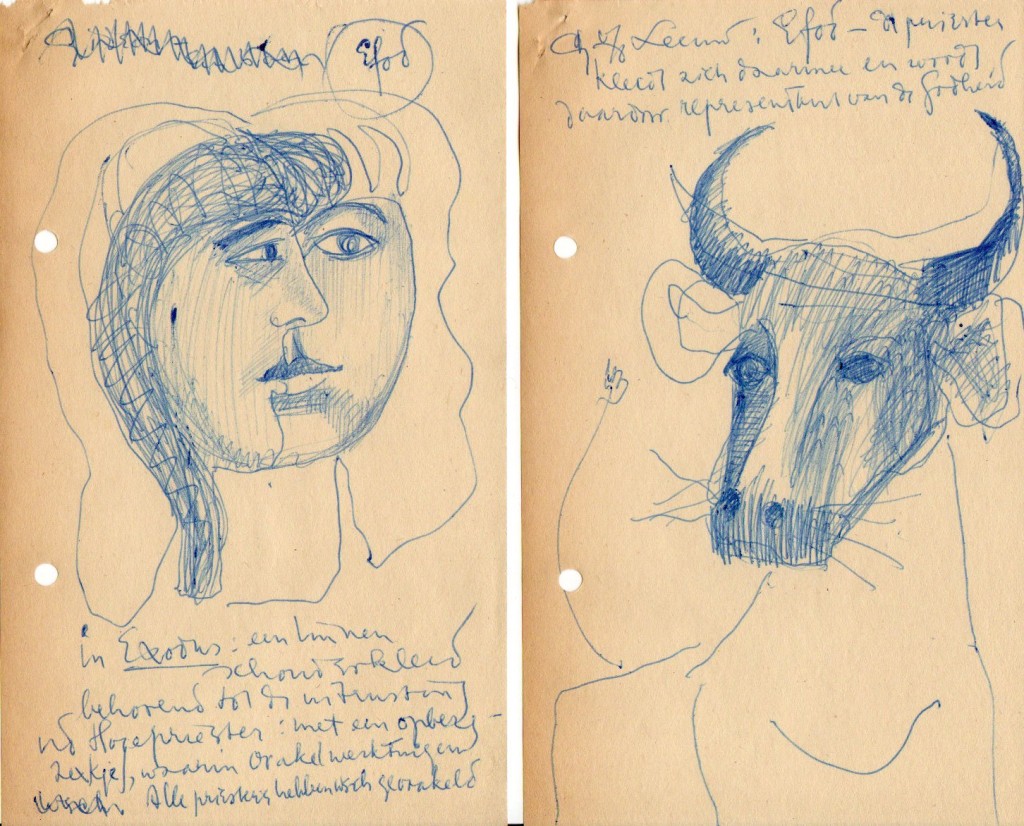 Efod
in Exodus: een linnen
schouderkleed
behorend tot de uitrusting
vd Hogepriester: met een opberg-
zakje, waarin orakelwerktuigen
Alle priesters hebben georakeld
vd Leeuw: Efod – de priester
kleedt zich daarmee en wordt
daardoor representant van de Godheid